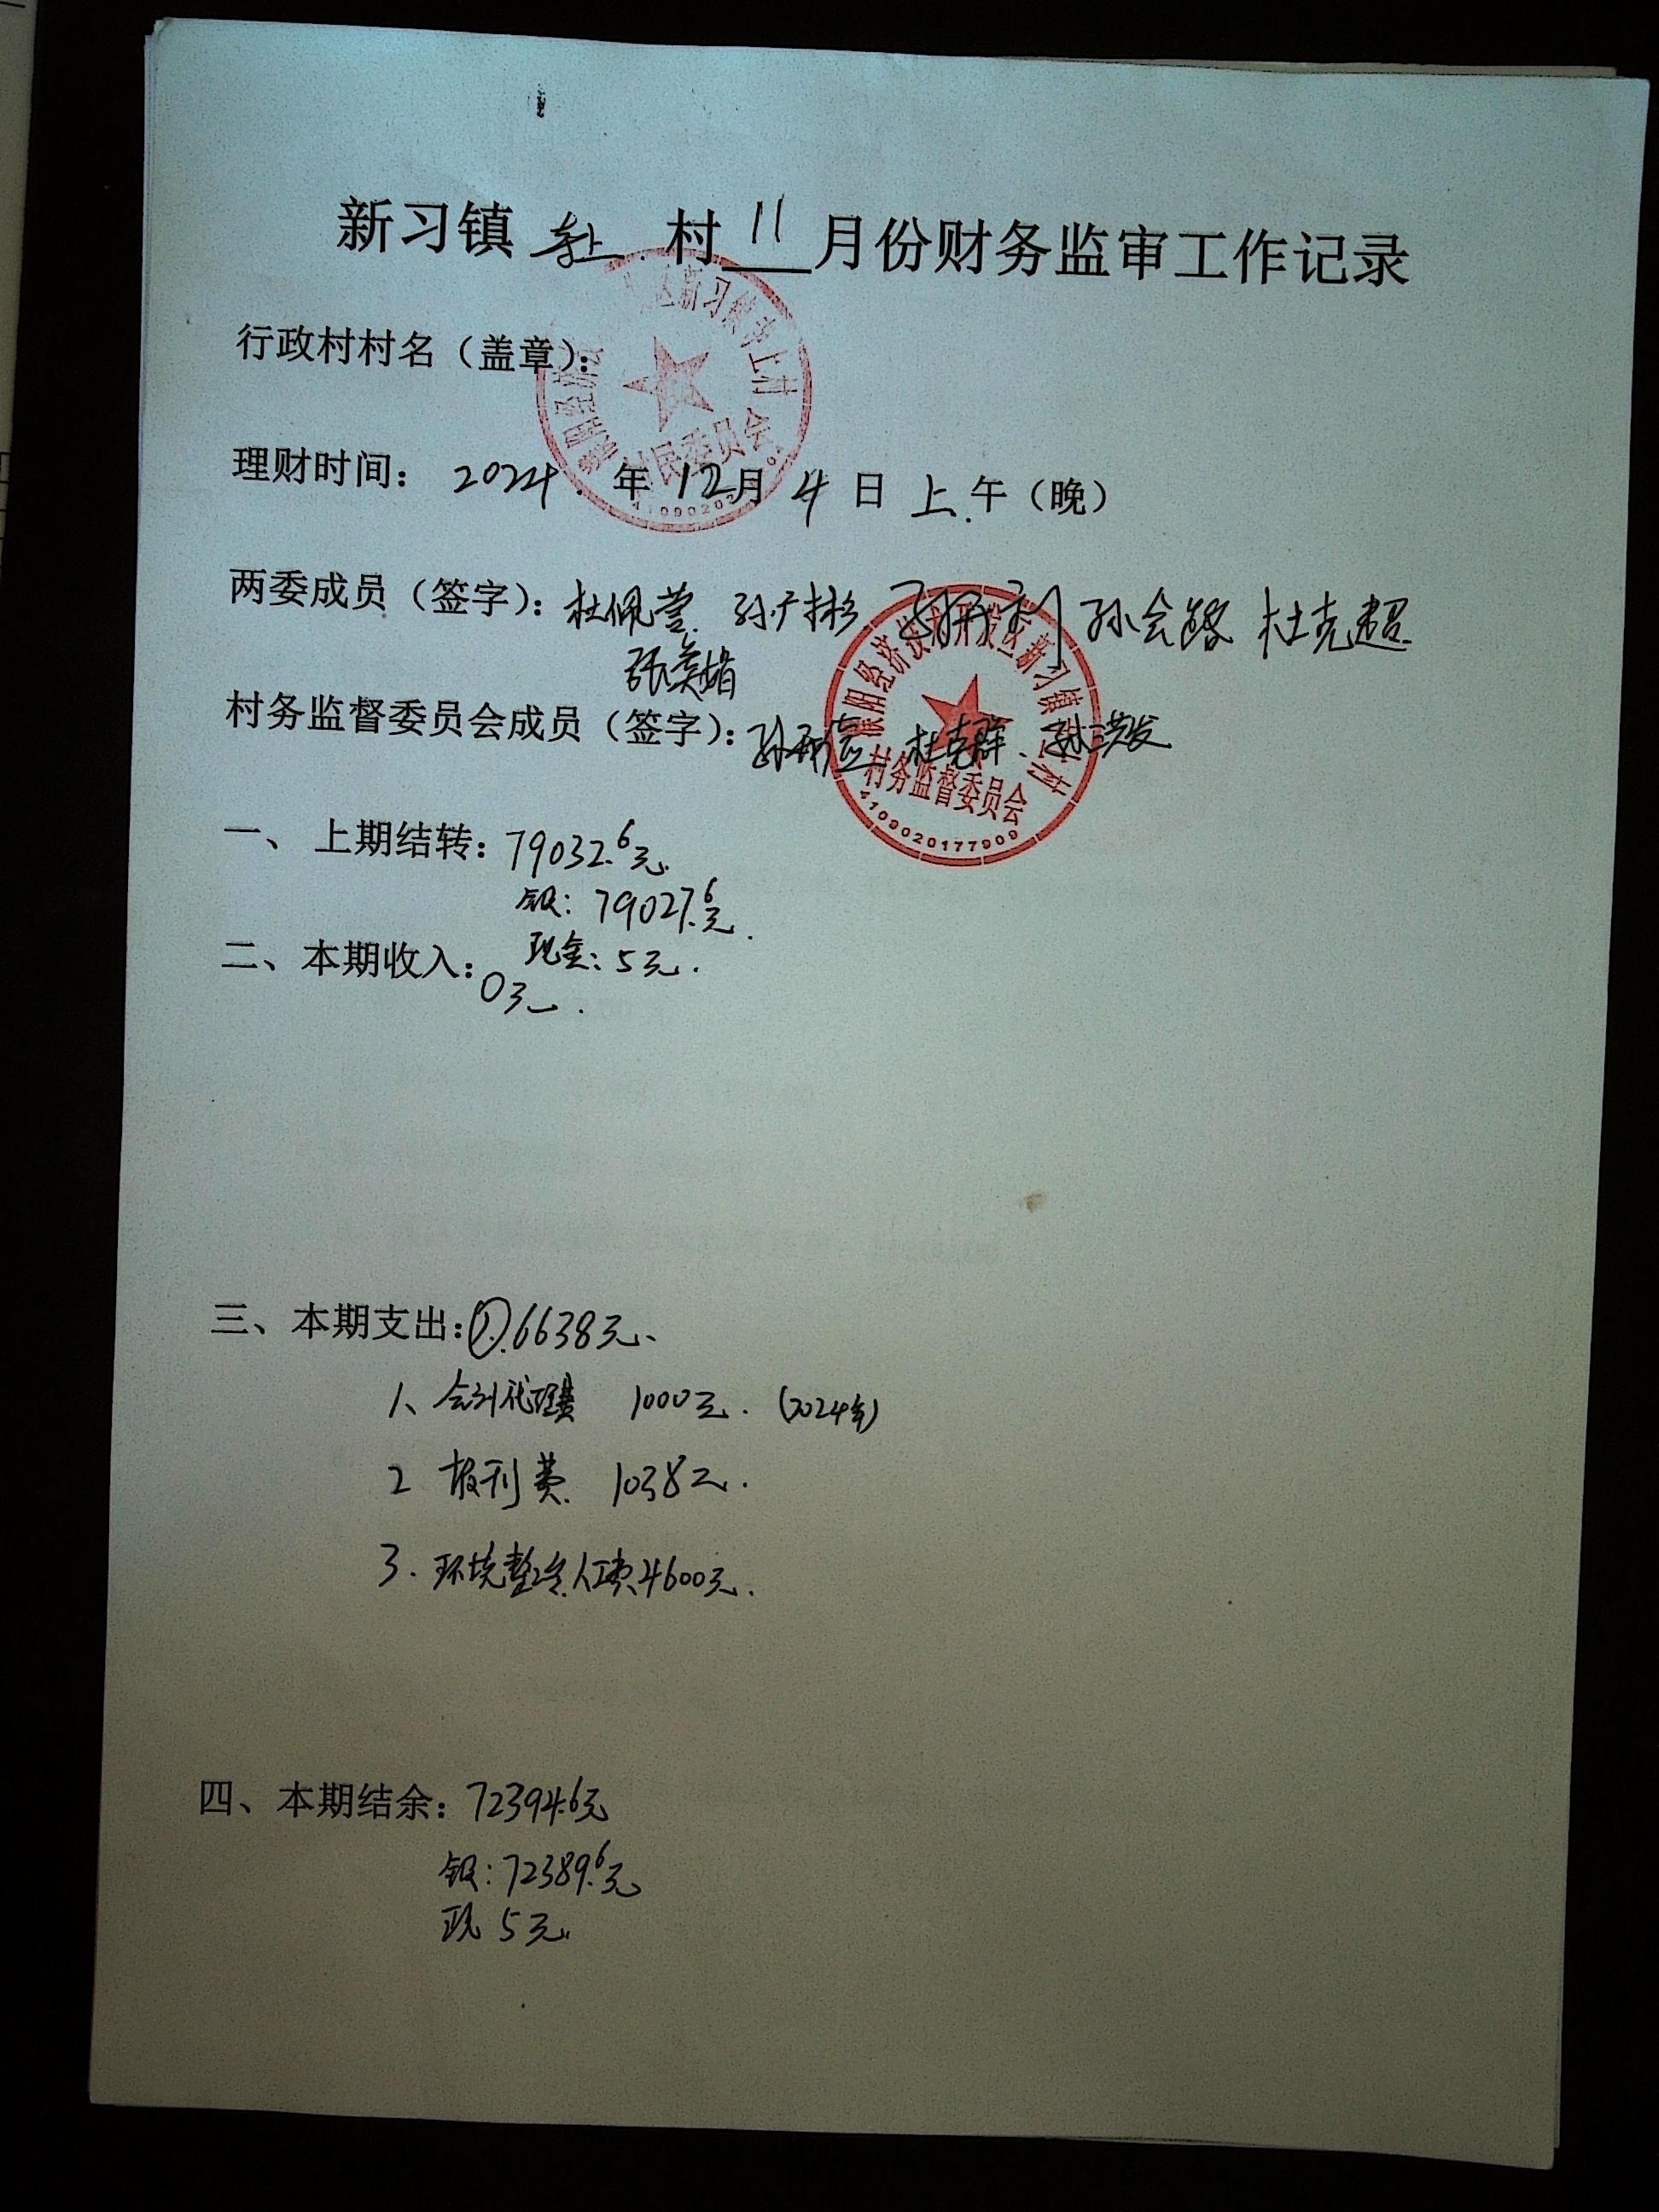 新习镇 村 11 月份财务监审工作记录
行政村村名（盖章）：
村民委员会
理财时间： 2024. 年 12月 4 日 上.午（晚）
两委成员（签字）：杜佩莹. 孙广彬 孙会路 杜克超
村务监督委员会成员（签字）： 杜克群. 孙三发
濮阳经济技术开发区新习镇 村
村务监督委员会
4109020177909
一、 上期结转：79032.6元.
银：79027.6元.
现金：5元.
二、本期收入：
0元.
三、本期支出：①.6638元、
1、会计代理费 1000元.（2024年）
2 报刊费. 1038元.
3. 环境整治人工费4600元.
四、本期结余：72394.6元
银：72389.6元
现 5元.